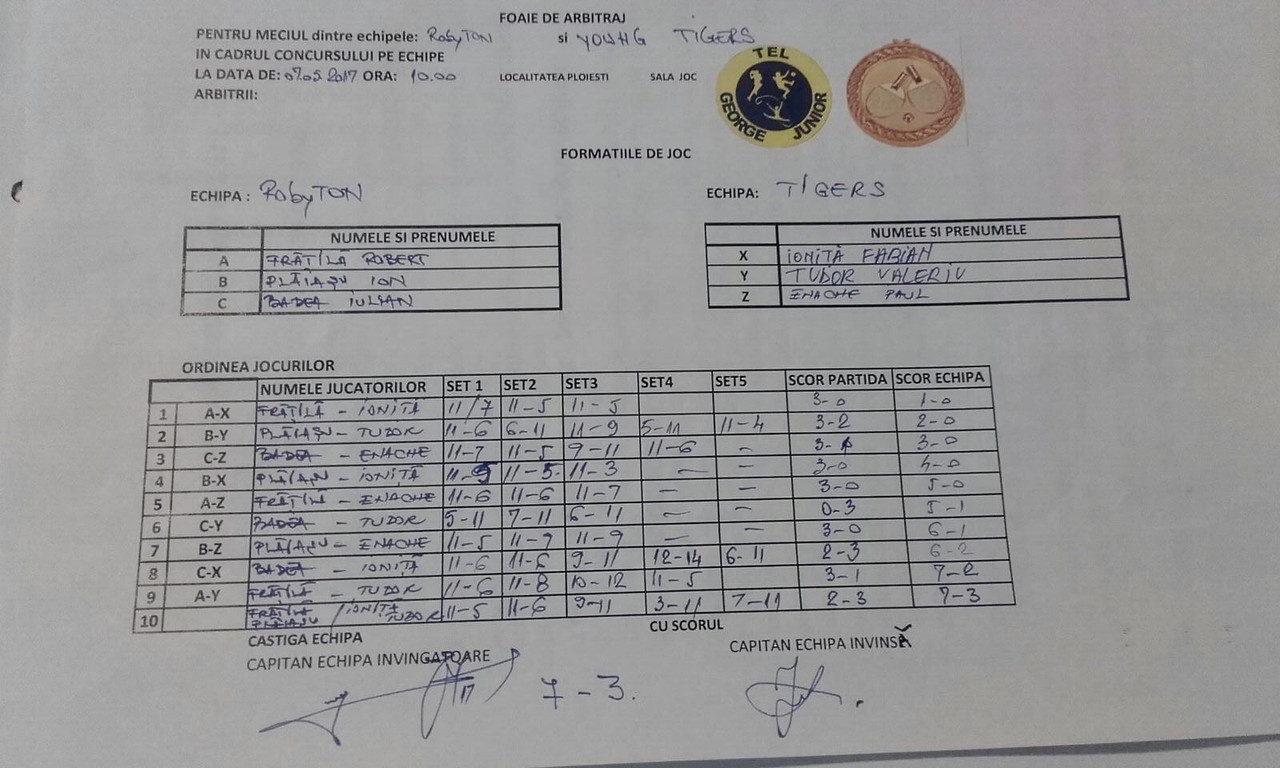 FOAIE DE ARBITRAJ
PENTRU MECIUL dintre echipele: RobyTON si YOUNG TIGERS
IN CADRUL CONCURSULUI PE ECHIPE
LA DATA DE: 07.05.2017 ORA: 10.00 LOCALITATEA PLOIESTI SALA JOC
ARBITRII:
TEL
GEORGE JUNIOR
FORMATIILE DE JOC
ECHIPA : RobyTON ECHIPA: TIGERS
NUMELE SI PRENUMELE NUMELE SI PRENUMELE
A FRĂȚILĂ ROBERT X IONIȚĂ FABIAN
B PLĂIAȘU ION Y TUDOR VALERIU
C BADEA IULIAN Z ENACHE PAUL
ORDINEA JOCURILOR
NUMELE JUCATORILOR SET 1 SET2 SET3 SET4 SET5 SCOR PARTIDA SCOR ECHIPA
1 A-X FRĂȚILĂ - IONIȚĂ 11/7 11-5 11-5 3-0 1-0
2 B-Y PLĂIAȘU - TUDOR 11-6 6-11 11-9 5-11 11-4 3-2 2-0
3 C-Z BADEA - ENACHE 11-7 11-5 9-11 11-6 - 3-1 3-0
4 B-X PLĂIAȘU - IONIȚĂ 11-9 11-5 11-3 - - 3-0 4-0
5 A-Z FRĂȚILĂ - ENACHE 11-6 11-6 11-7 - - 3-0 5-0
6 C-Y BADEA - TUDOR 5-11 7-11 6-11 - - 0-3 5-1
7 B-Z PLĂIAȘU - ENACHE 11-5 11-9 11-9 - 3-0 6-1
8 C-X BADEA - IONIȚĂ 11-6 11-6 9-11 12-14 6-11 2-3 6-2
9 A-Y FRĂȚILĂ - TUDOR 11-6 11-8 10-12 11-5 3-1 7-2
10 FRĂȚILĂ PLĂIAȘU / IONIȚĂ TUDOR 11-5 11-6 9-11 3-11 7-11 2-3 7-3
CASTIGA ECHIPA CU SCORUL
CAPITAN ECHIPA INVINGATOARE CAPITAN ECHIPA INVINSĂ
7-3.